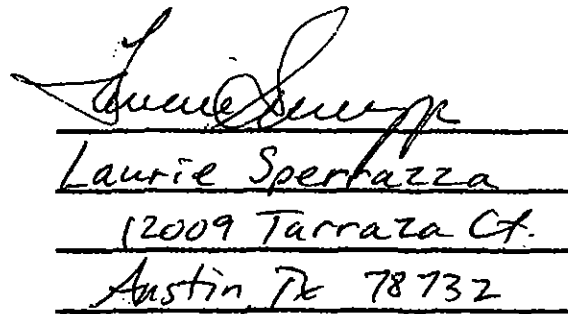 Laurie Sperrazza
Laurie Sperrazza
12009 Tarraza Ct.
Austin, Tx 78732